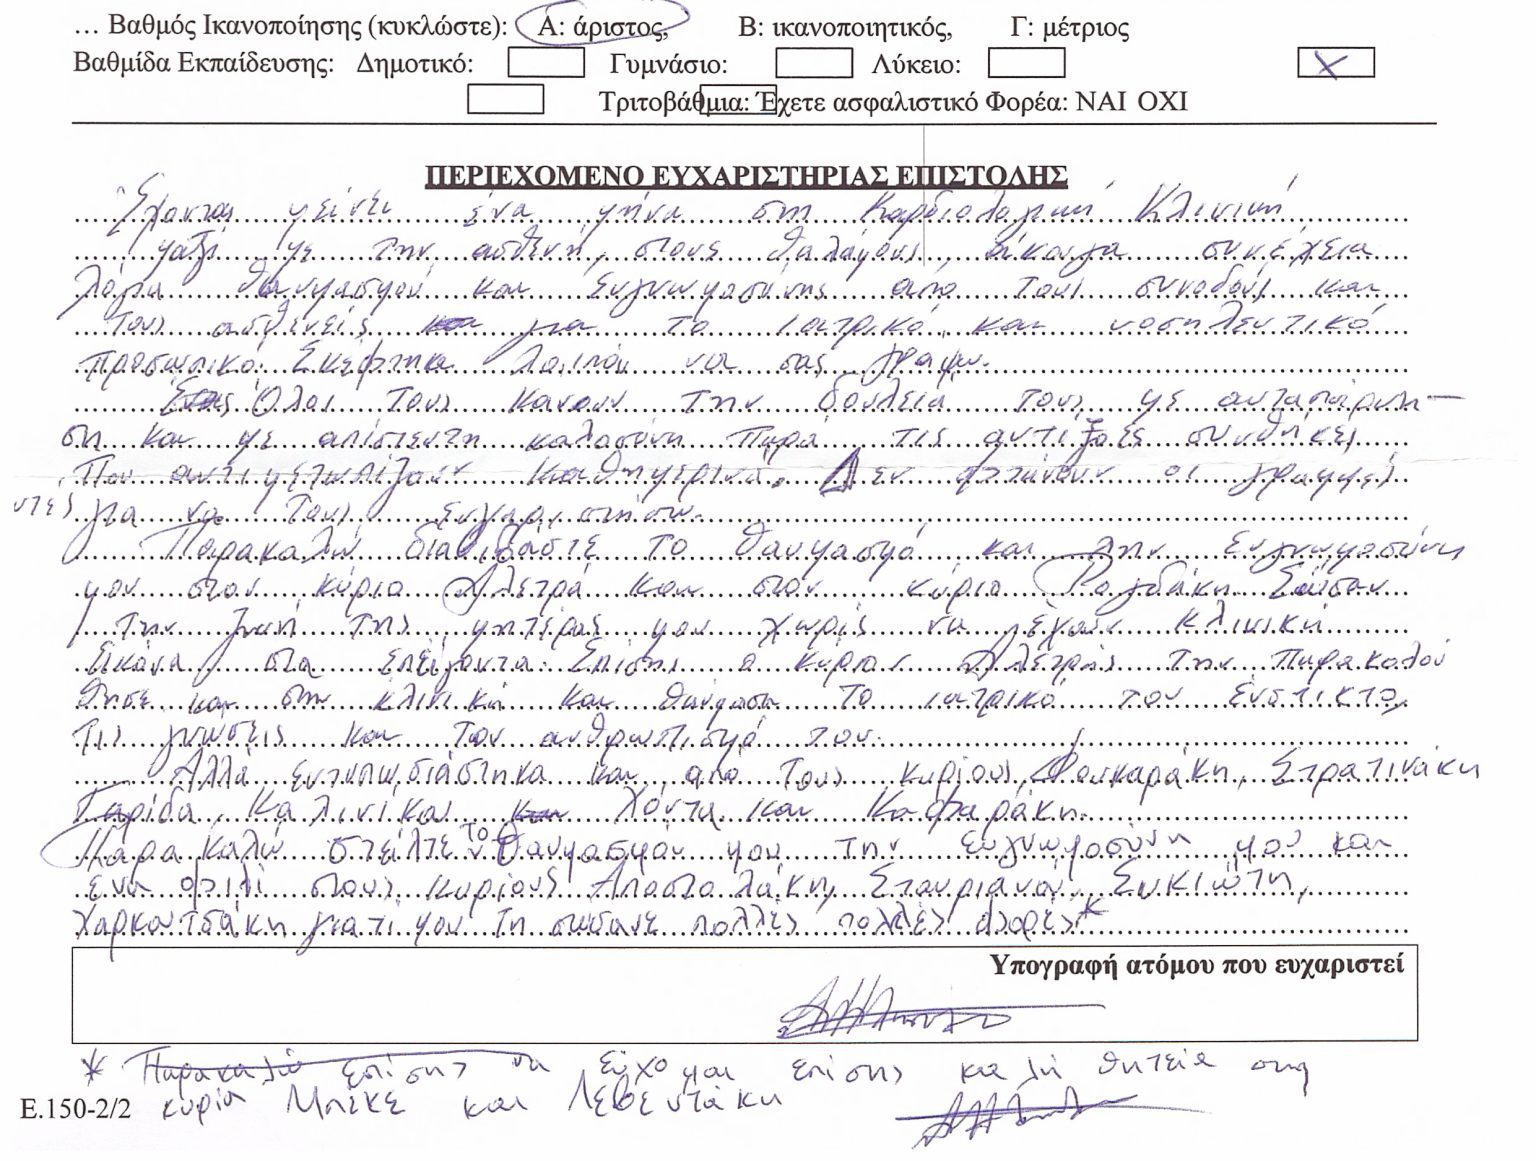 ... Βαθμός Ικανοποίησης (κυκλώστε): Α: άριστος, Β: ικανοποιητικός, Γ: μέτριος
Βαθμίδα Εκπαίδευσης: Δημοτικό: Γυμνάσιο: Λύκειο: X
Τριτοβάθμια: Έχετε ασφαλιστικό Φορέα: ΝΑΙ ΟΧΙ
ΠΕΡΙΕΧΟΜΕΝΟ ΕΥΧΑΡΙΣΤΗΡΙΑΣ ΕΠΙΣΤΟΛΗΣ
Έχοντας μείνει ένα μήνα στη Καρδιολογική Κλινική
μαζί με την ασθενή, στους θαλάμους άκουγα συνέχεια
λόγια θαυμασμού και ευγνωμοσύνης από τους συνοδούς και
τους ασθενείς για το ιατρικό και νοσηλευτικό
προσωπικό. Σκέφτηκα λοιπόν να σας γράψω.
Όλοι τους κάνουν την δουλειά τους με αυταπάρνη-
ση και με απίστευτη καλοσύνη παρά τις αντιξοές συνθήκες
που αντιμετωπίζουν καθημερινά. Δεν φτάνουν οι γραμμές
για να τους ευχαριστήσω.
Παρακαλώ διαβιβάστε το θαυμασμό και την ευγνωμοσύνη
μου στον κύριο Αλετρά και στον κύριο Ραγδάκη Σώσαν
την ζωή της μητέρας μου χωρίς να έχουν κλινική
εικόνα στα επείγοντα. Επίσης ο κύριος Αλετράς την παρακολού
θησε και στην κλινική και θαύμασα το ιατρικό του ένστικτο,
τις γνώσεις και τον ανθρωπισμό του.
Αλλά εντυπωσιάστηκα και από τους κυρίους Φουκαράκη, Στρατινάκη
Γαρίδα, Καλινίκο Λόντα και Καφαράκη.
Παρακαλώ στείλτε τον θαυμασμόν μου την ευγνωμοσύνη μου και
ένα φιλί στους κυρίους Αποστολάκη, Σταυριανού, Συκιώτη,
Χαρκουτσάκη γιατί μου τη σώσανε πολλές πολλές φορές *
Υπογραφή ατόμου που ευχαριστεί
* Παρακαλώ επίσης να εύχομαι επίσης καλή θητεία στη
Ε.150-2/2 κυρία Μπεκε και Λεβεντάκη